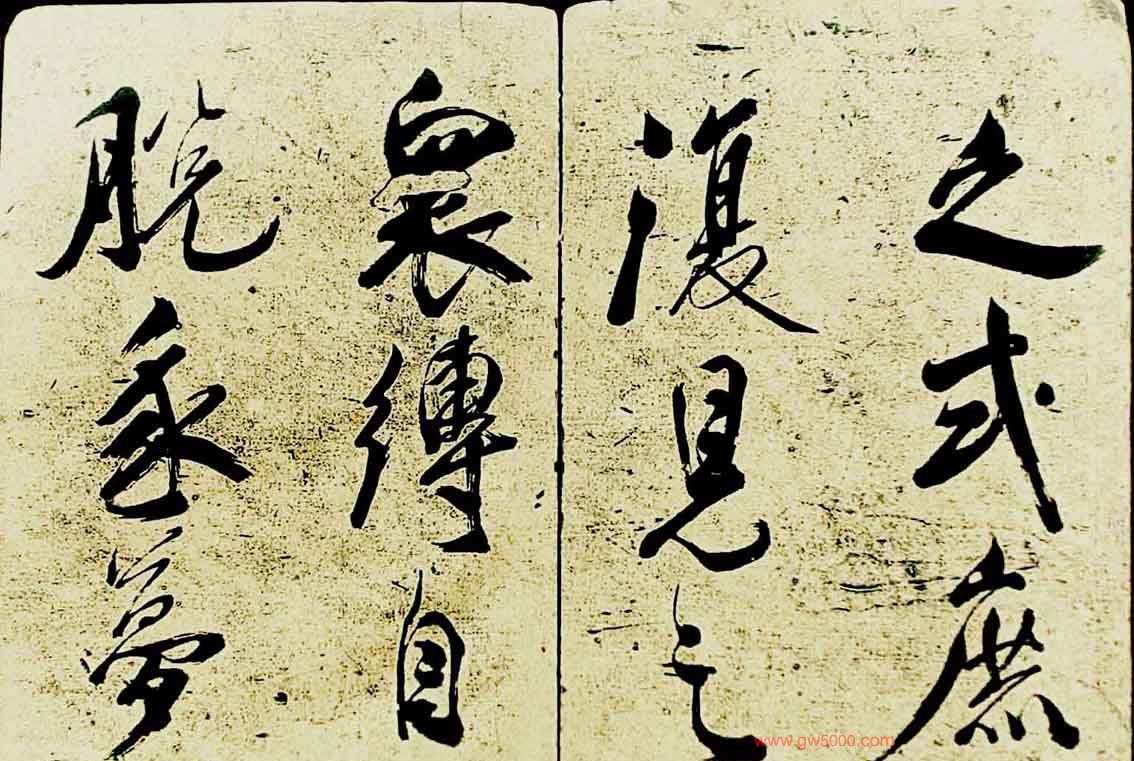 之式庶
復見之
眾縛自
脫夢
www.gw5000.com